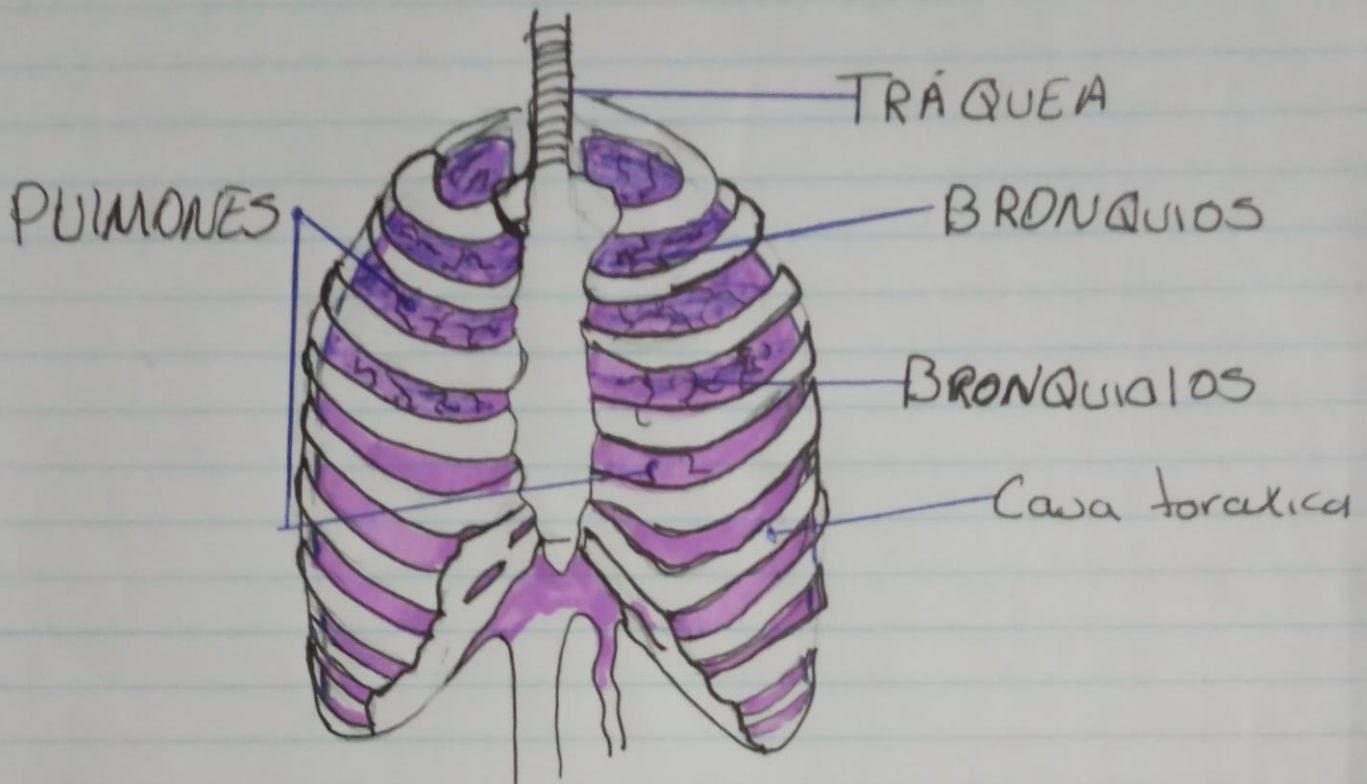 TRÁQUEA
PULMONES
BRONQUIOS
BRONQUIOLOS
Caja toraxica